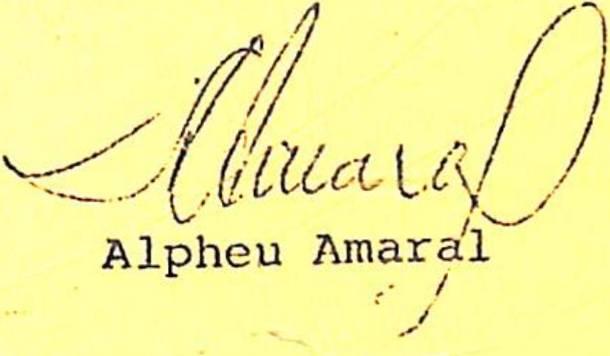 Amaral
Alpheu Amaral